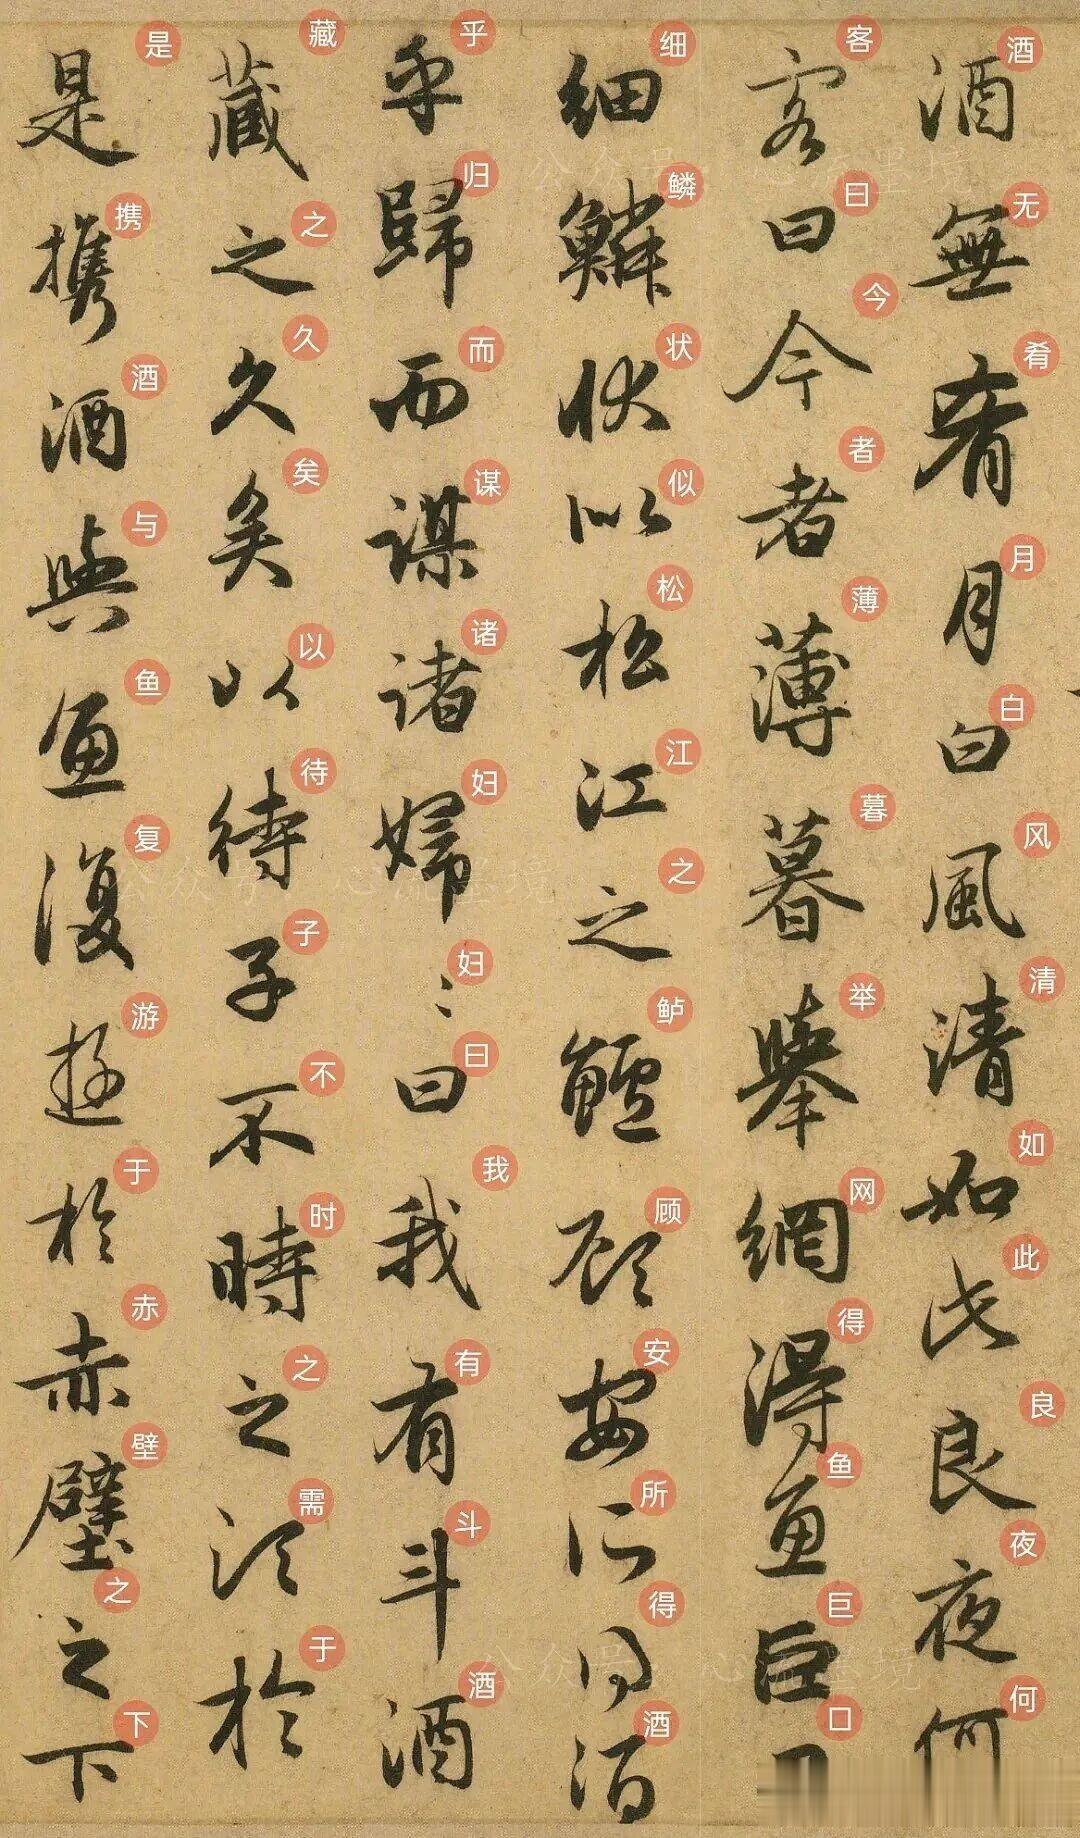 酒無肴月白風清如此良夜何
酒无肴月白风清如此良夜何
客曰今者薄暮舉網得魚巨口
客曰今者薄暮举网得鱼巨口
細鱗狀似松江之鱸顧安所得酒
细鳞状似松江之鲈顾安所得酒
乎歸而謀諸婦〻曰我有斗酒
乎归而谋诸妇妇曰我有斗酒
藏之久矣以待子不時之須於
藏之久矣以待子不时之需于
是攜酒與魚復遊於赤壁之下
是携酒与鱼复游于赤壁之下
公众号